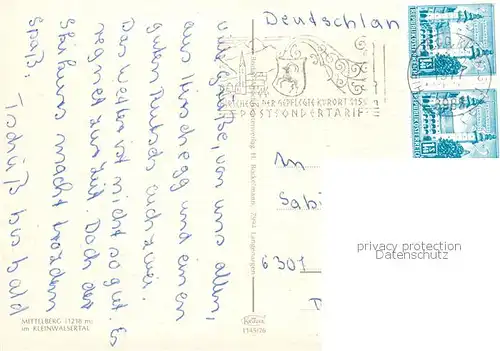 viele Grüße, von uns allen,
aus Hirschegg und einen
guten Rutsch euch zwei.
Das Wetter ist nicht so gut. Es
regnet zur Zeit. Doch der
Skikurs macht trotzdem
Spaß. Tschüß bis bald
MITTELBERG (1218 m)
im KLEINWALSERTAL
1145/76
Deutschlan
DER GEPFLEGTE KURORT
POSTSONDERTARIF
REPUBLIK ÖSTERREICH
REPUBLIK ÖSTERREICH
An
Sabi
6301
privacy protection
Datenschutz